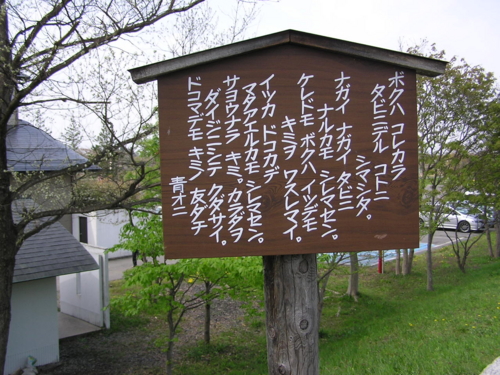 ボクハ コレカラ
タビニデル コトニ
シマシタ。
ナガイ ナガイ タビニ
ナルカモ シレマセン。
ケレドモ ボクハ イツデモ
キミヲ ワスレマイ。
イツカ ドコカデ
マタアエルカモ シレマセン。
サヨウナラ キミ、カラダヲ
ダイジニシテ クダサイ。
ドコマデモ キミノ 友ダチ
青オニ